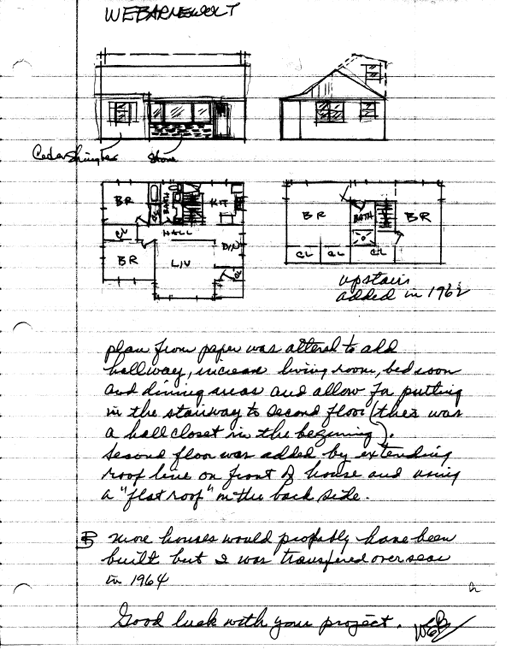 WEBARNEWOLT
Cedar Shingles
Stone
BR
BATH
KIT
HALL
DIN
BR
LIV
CL
BR
BATH
BR
CL
CL
CL
upstairs
added in 1962
plan from paper was altered to add
hallway, increase living room, bedroom
and dinning areas and allow for putting
in the stairway to second floor (ther was
a hall closet in the beginning).
Second floor was added by extending
roof line on front of house and using
a "flat roof" in the back side.
more houses would probably have been
built but I was transfered over seas
in 1964
Good luck with your project. WEB